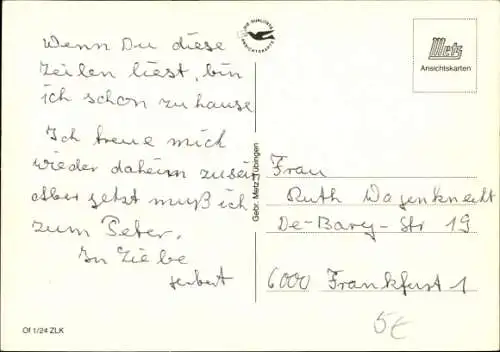 Wenn Du diese
Zeilen liest, bin
ich schon zu hause
Ich freue mich
wieder daheim zu sein
Aber jetzt muß ich
zum Peter.
In Liebe
Herbert
Of 1/24 ZLK
DIE QUALITÄTS
ANSICHTSKARTE
Gebr. Metz, Tübingen
Metz
Ansichtskarten
Frau
Ruth Wagenknecht
De-Bary-Str 19
6000 Frankfurt 1
5€